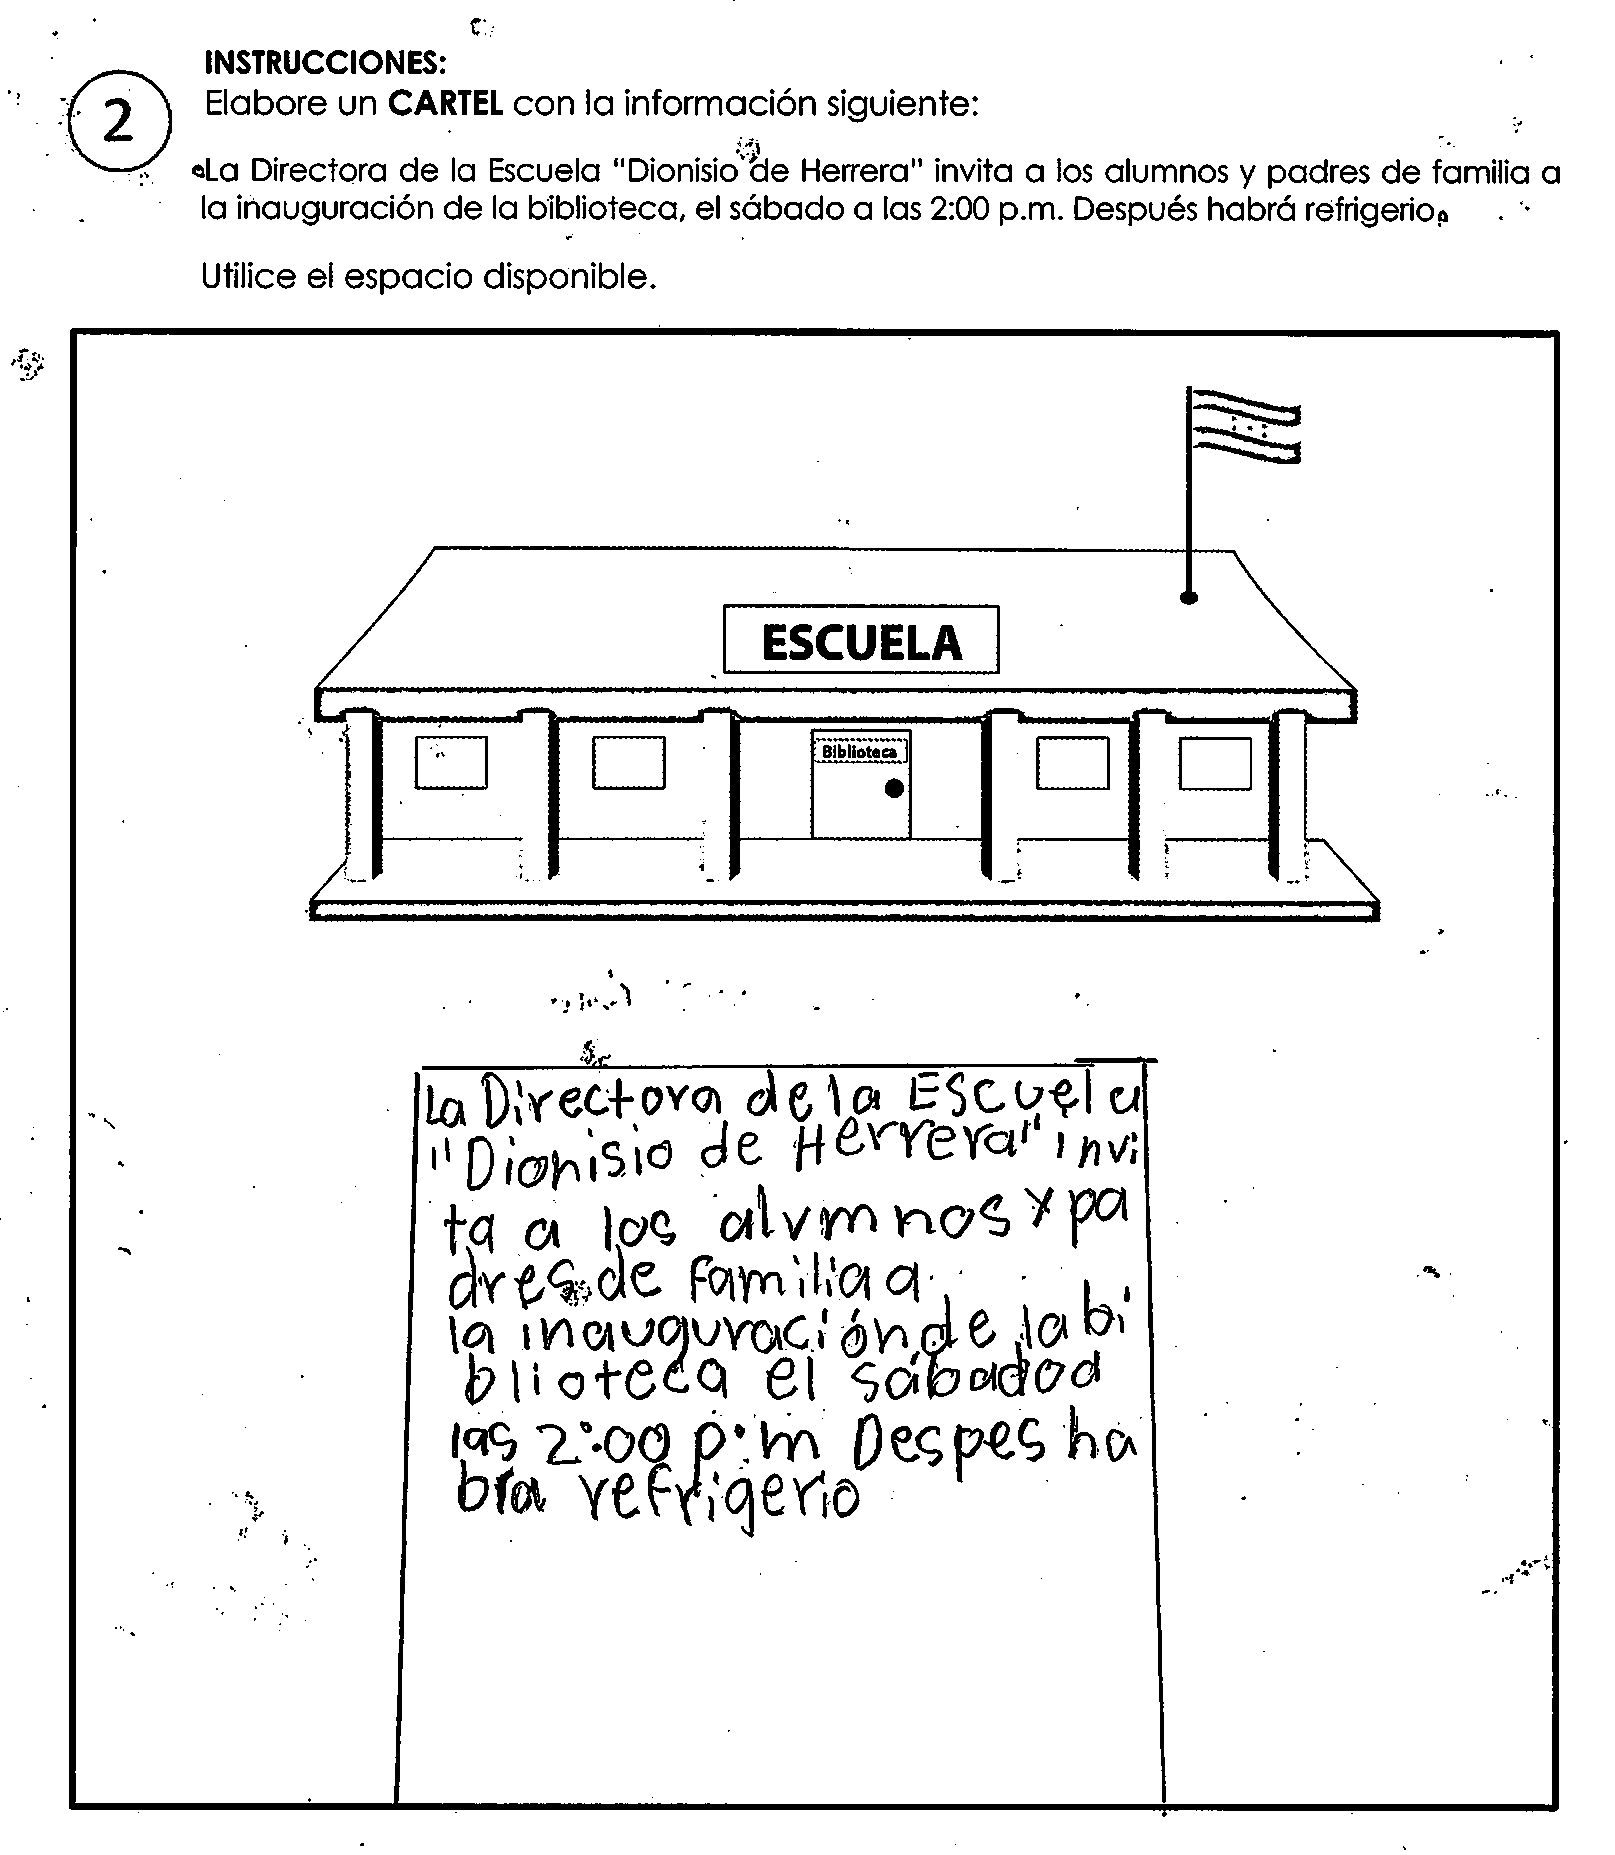 INSTRUCCIONES:
2
Elabore un CARTEL con la información siguiente:
La Directora de la Escuela "Dionisio de Herrera" invita a los alumnos y padres de familia a
la inauguración de la biblioteca, el sábado a las 2:00 p.m. Después habrá refrigerio.
Utilice el espacio disponible.
ESCUELA
Biblioteca
La Directora de la Escuela
"Dionisio de Herrera" invi
ta a los alumnos y pa
dres de familia a
la inauguración de la bi
blioteca el sábado a
las 2:00 p.m Despes ha
bra refrigerio